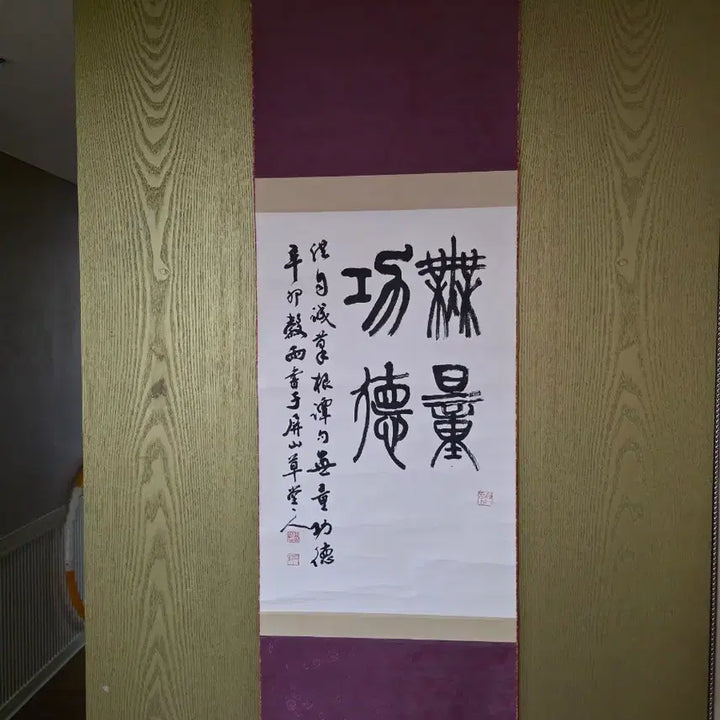 無量
功德
句 菜根譚句無量功德
辛卯穀雨書于屏山草堂人